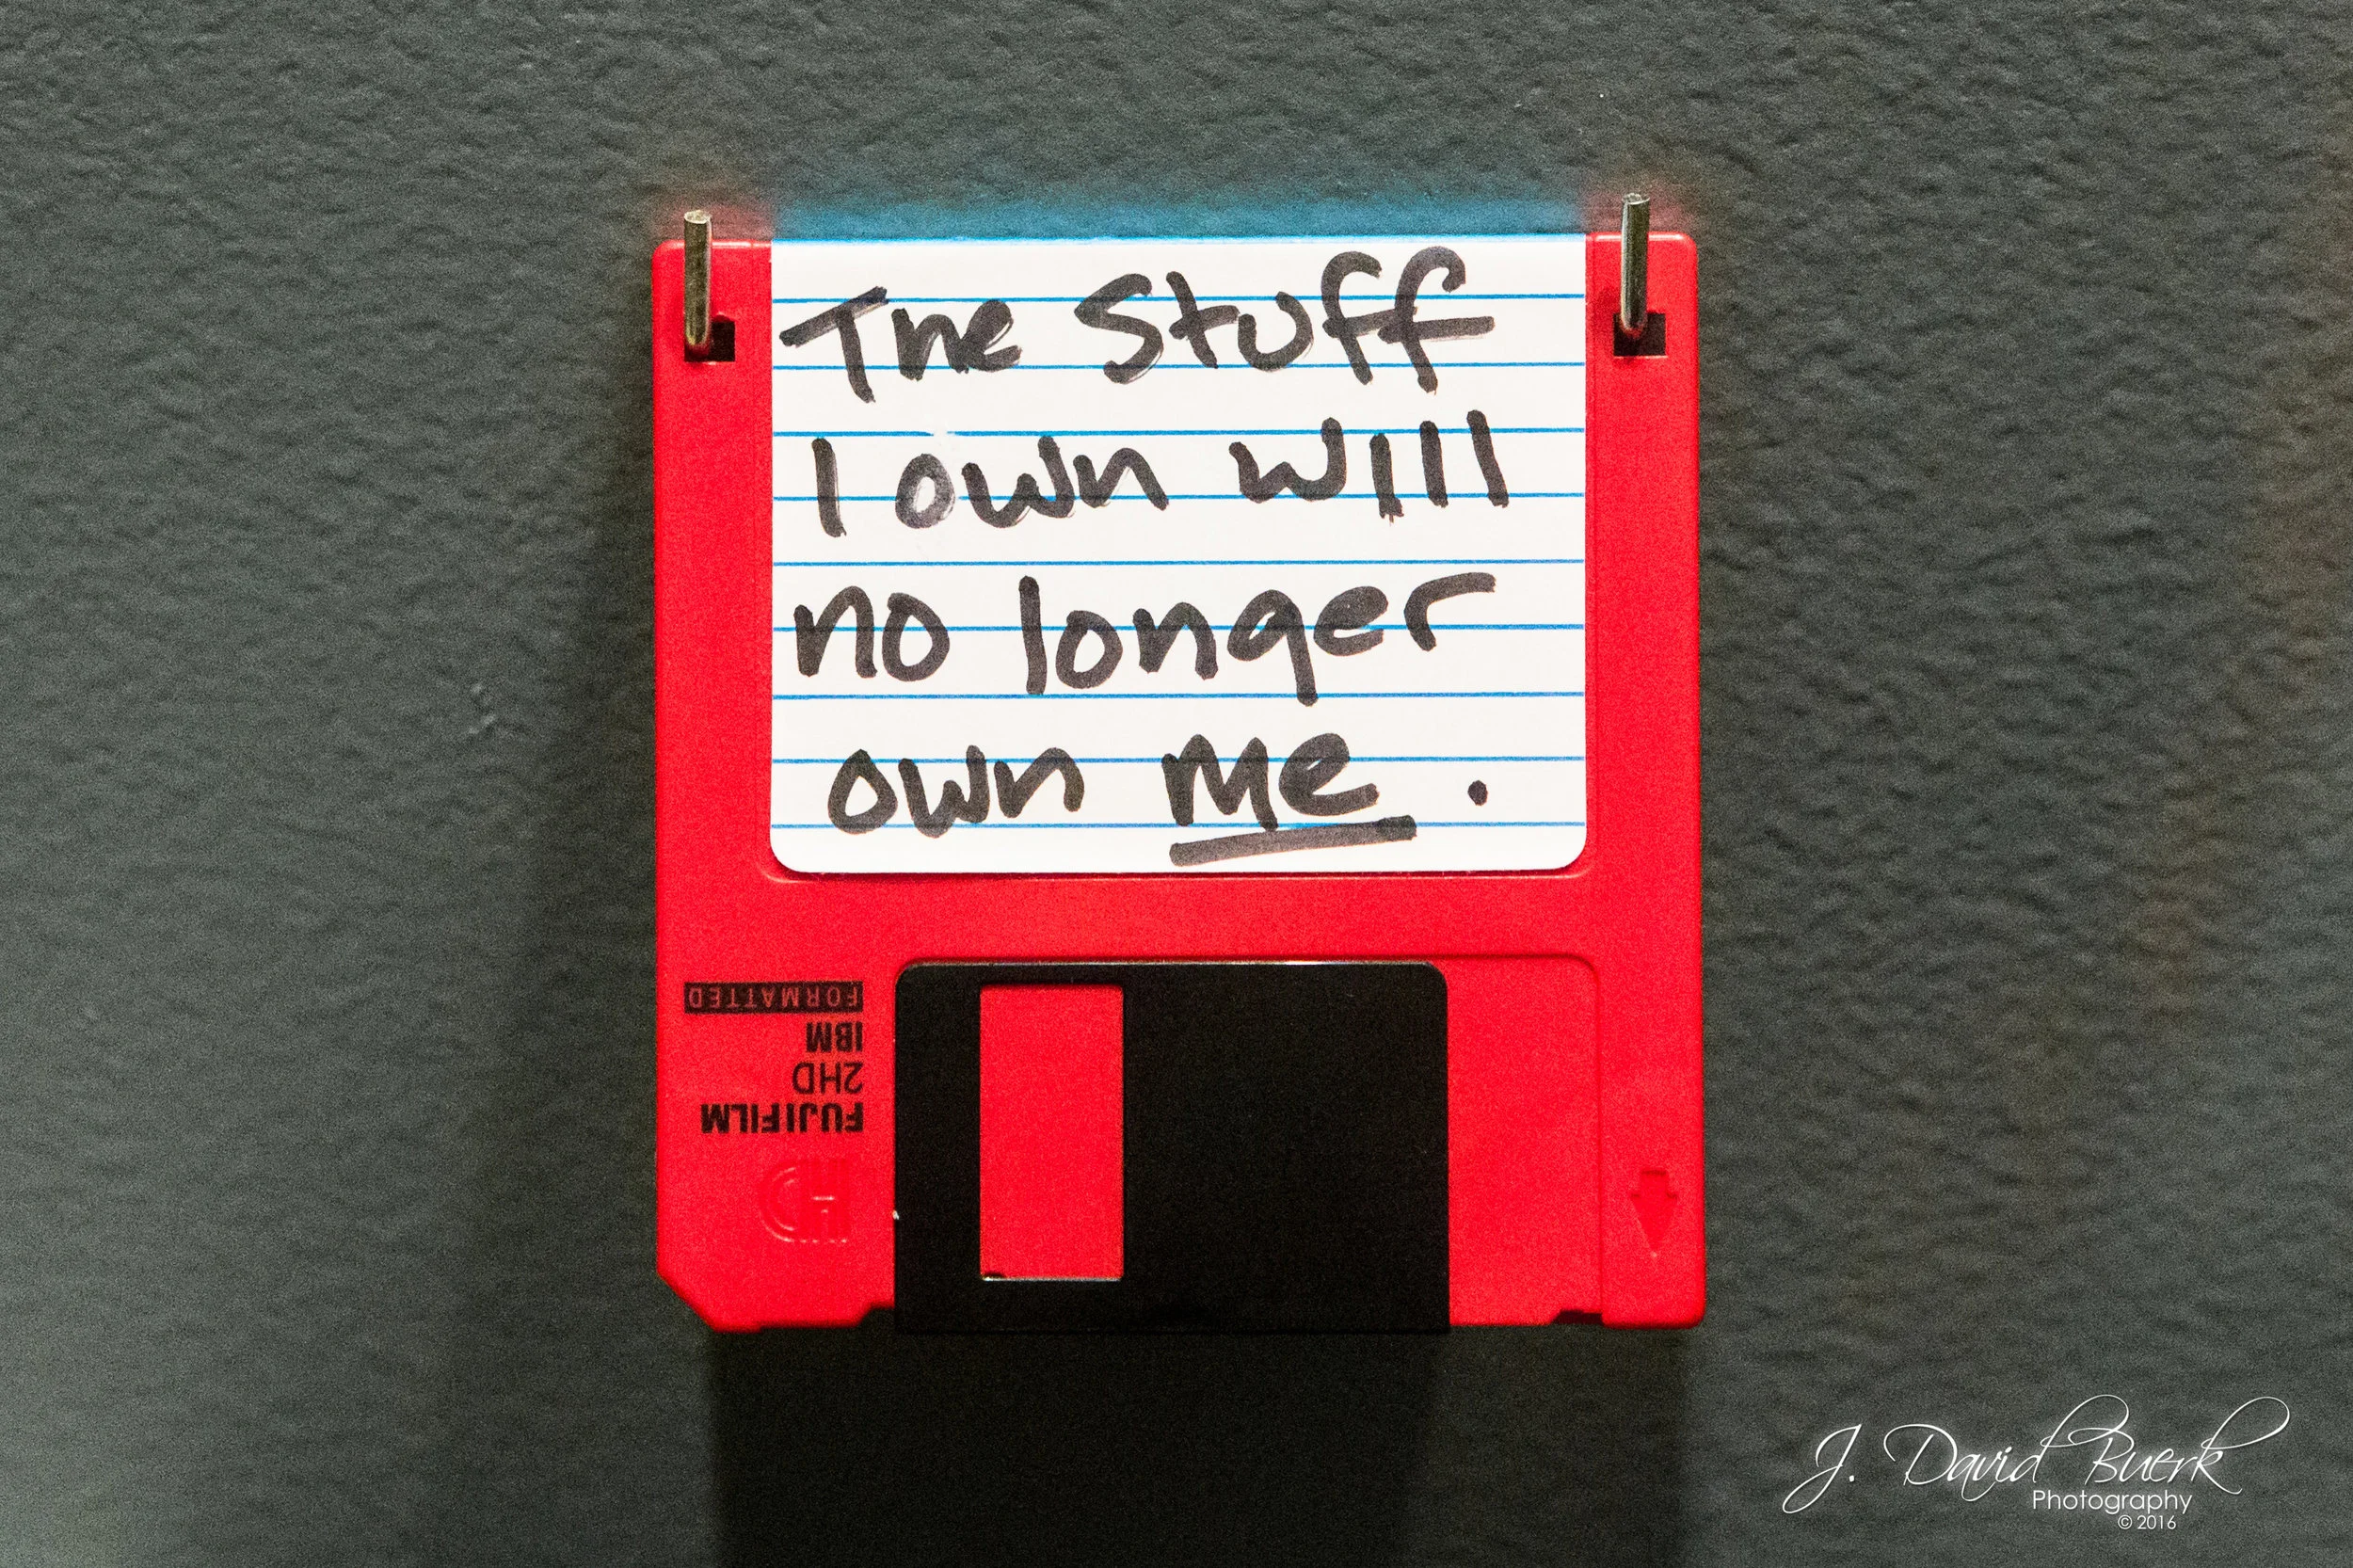 The Stuff
I own will
no longer
own me.
FORMATTED
IBM
2HD
FUJIFILM
HD
J. David Buerk
Photography
© 2016